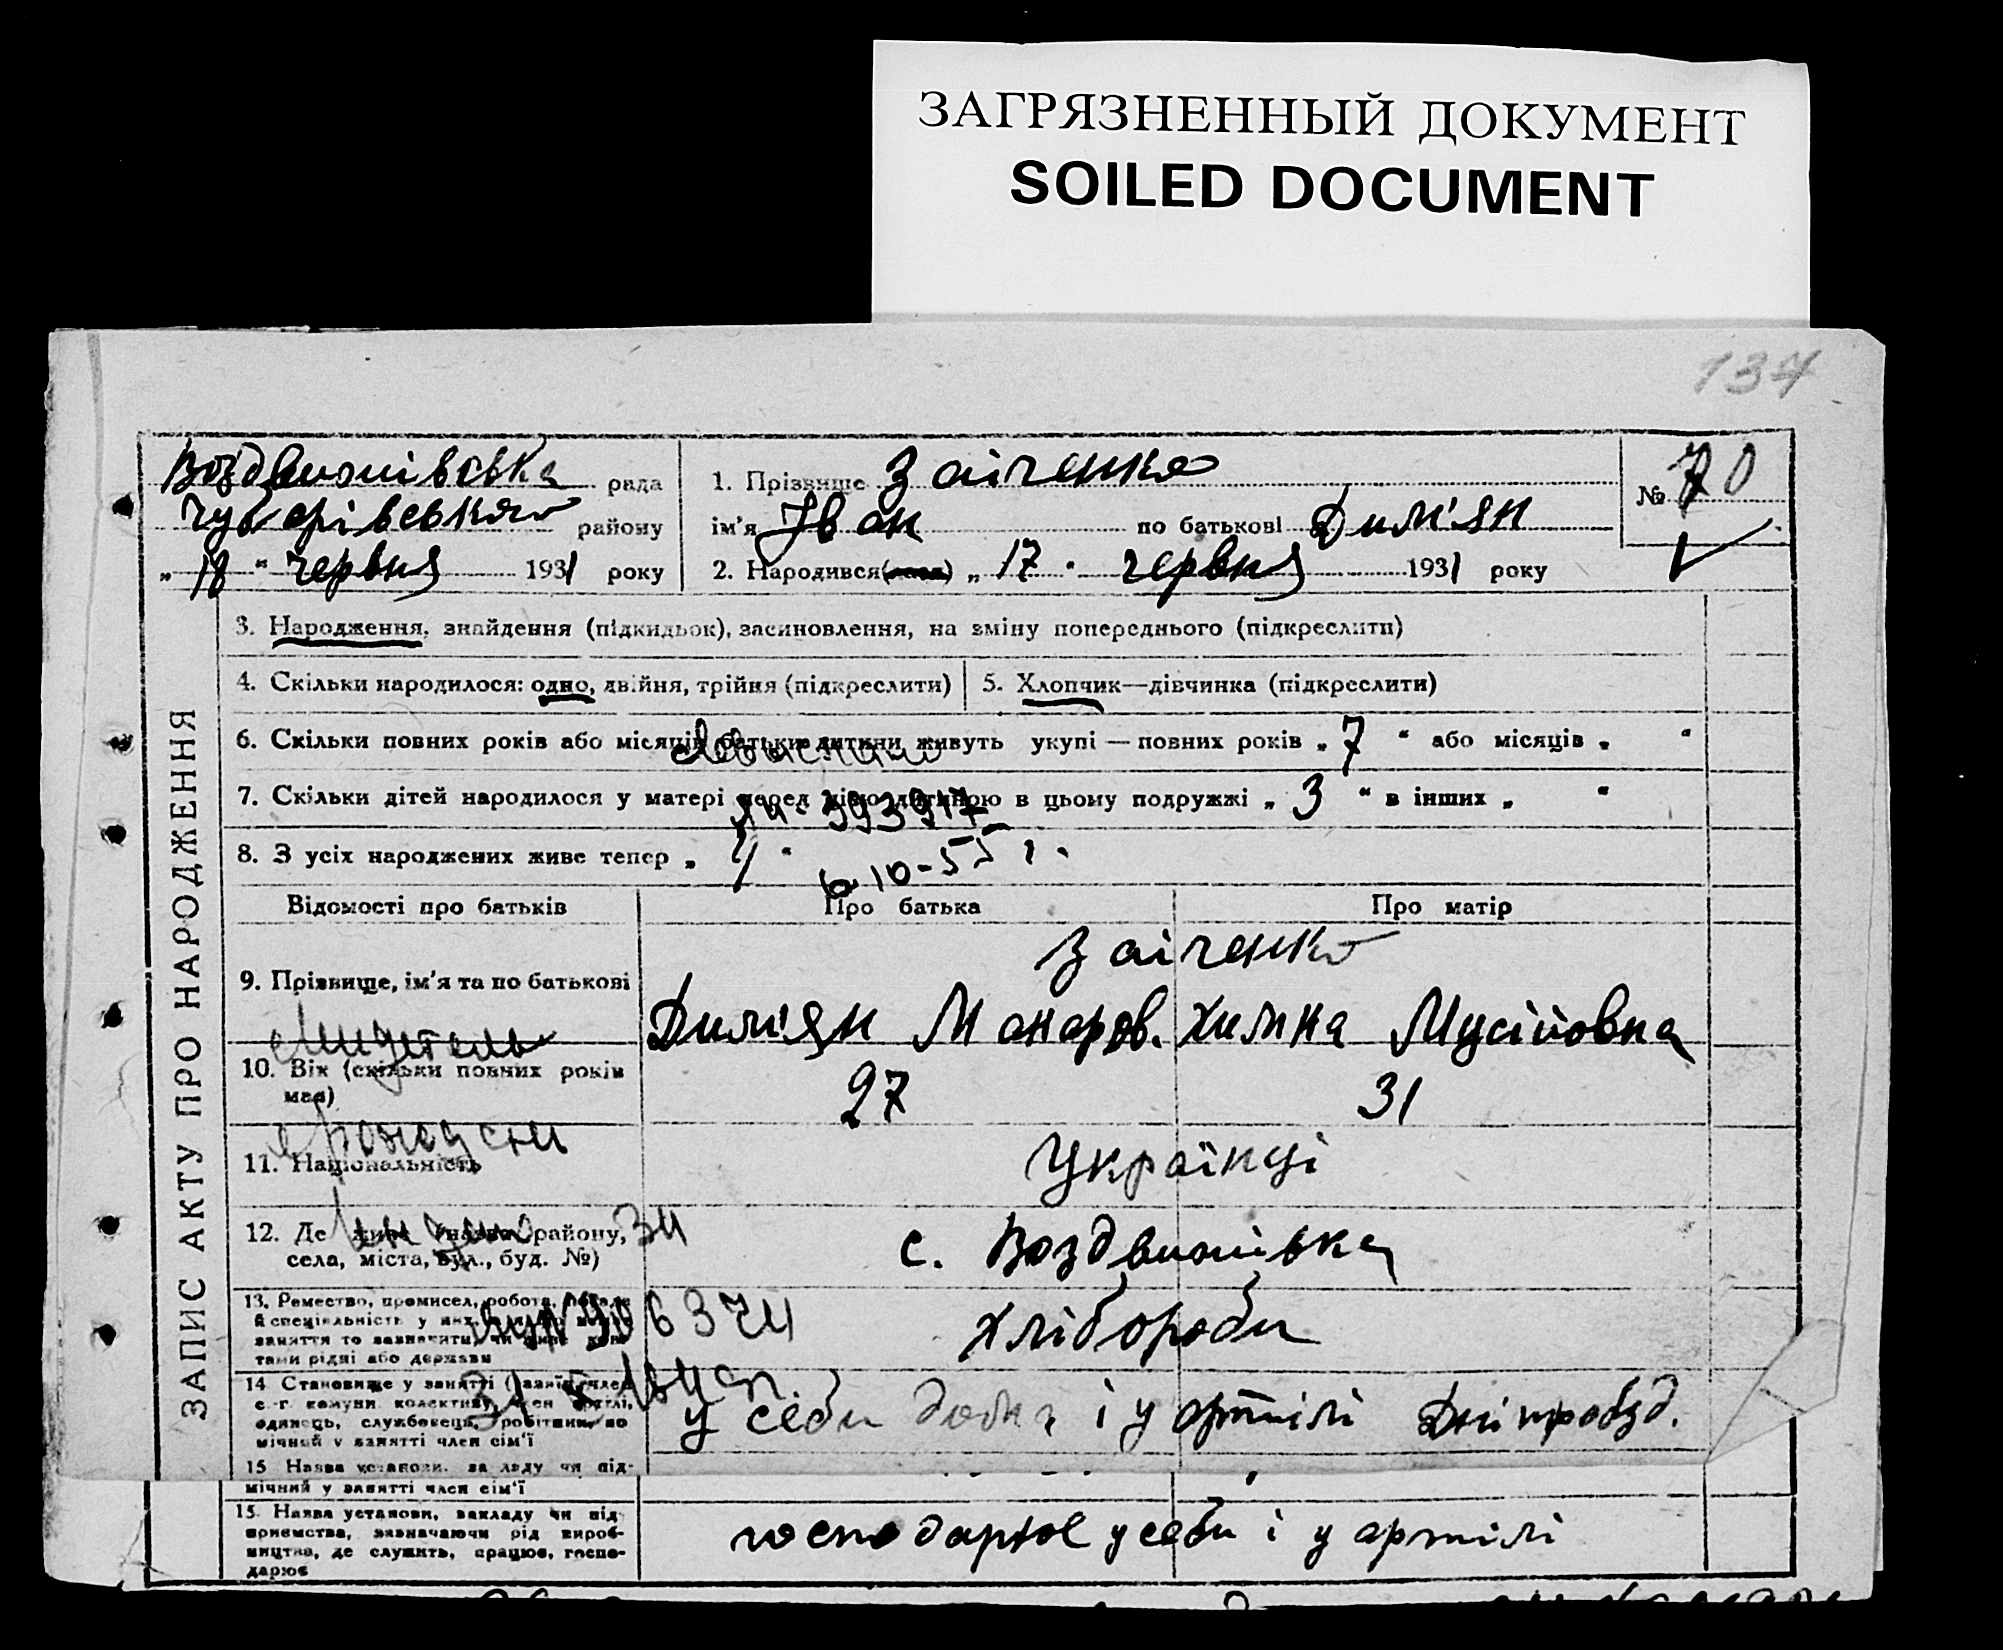 ЗАГРЯЗНЕННЫЙ ДОКУМЕНТ
SOILED DOCUMENT
134
Воздвижівська рада
Чубарівського району
„ 18 “ червня 1931 року
1. Прізвище Заіченко
ім'я Іван по батькові Дим'ян
2. Народився „ 17 “ червня 1931 року
№ 70
ЗАПИС АКТУ ПРО НАРОДЖЕННЯ
3. Народження, знайдення (підкидьок), засиновлення, на зміну попереднього (підкреслити)
4. Скільки народилося: одно, двійня, трійня (підкреслити)
5. Хлопчик—дівчинка (підкреслити)
6. Скільки повних років або місяців батьки дитини живуть укупі — повних років „ 7 “ або місяців „ “
7. Скільки дітей народилося у матері перед цією дитиною в цьому подружжі „ 3 “ в інших „ “
393917
8. З усіх народжених живе тепер „ 4 “
10-55 г.
Відомості про батьків
Про батька
Про матір
9. Прізвище, ім'я та по батькові
Заіченко
Дим'ян Макаров. Химка Мусійовна
10. Вік (скільки повних років має)
27
31
11. Національність
Українці
12. Де живе (назва району,
села, міста, вул., буд. №)
с. Воздвижівка
13. Ремество, промисел, робота, посада
й спеціяльність у них,
заняття то зазначити, чи живе кош-
тами рідні або держави
Хлібороби
14. Становище у занятті (
с.-г. комуни, колективу, член артілі,
одинець, службовець, робітник, по
мічний у занятті член сім'ї
у себи дома і у артілі Дніпробуд.
15 Назва установи, закладу чи під-
мічний у занятті член сім'ї
15. Назва установи, закладу чи під-
приємства, зазначаючи рід вироб-
ництва, де служить, працює, госпо-
дарює
господарює у себи і у артілі